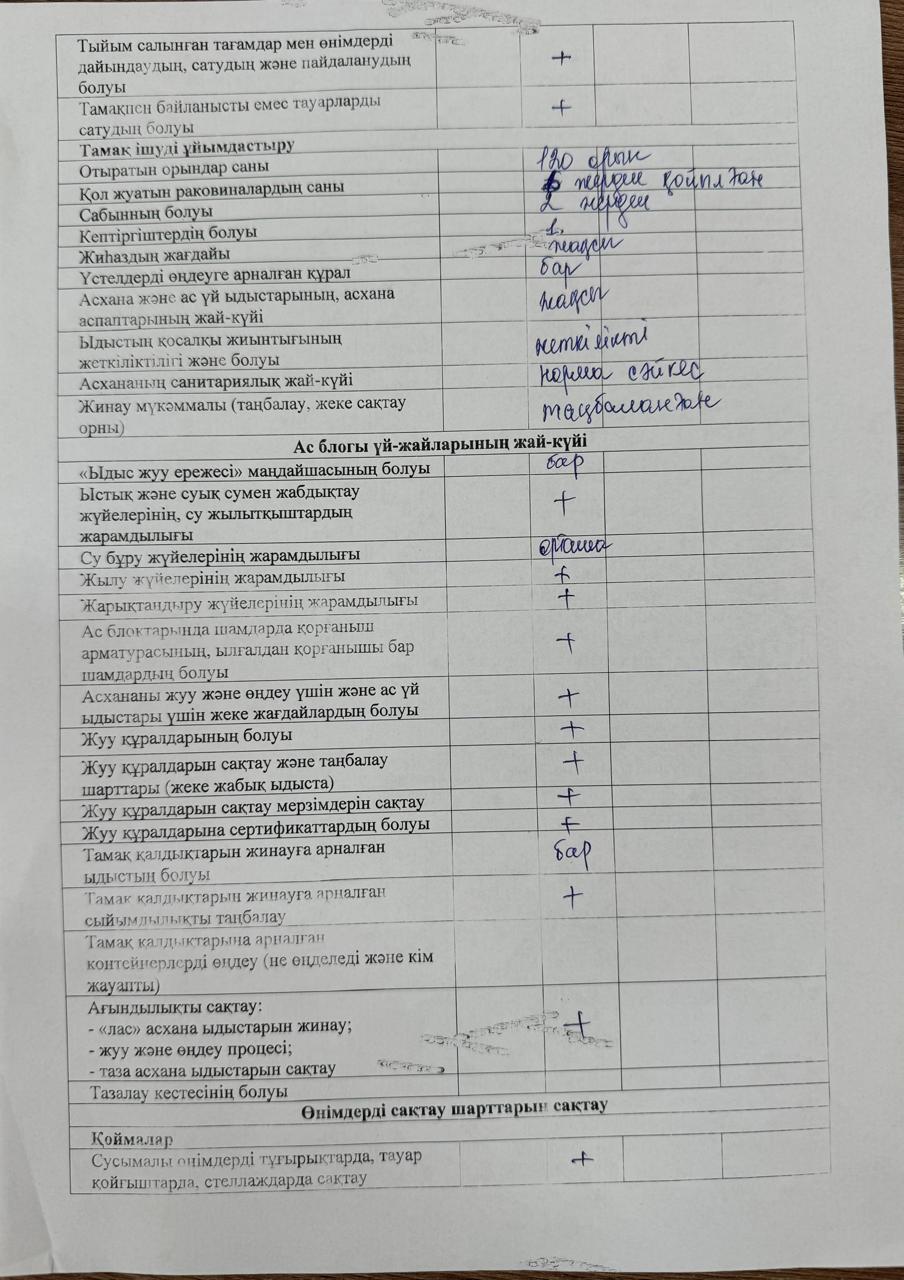 Тыйым салынған тағамдар мен өнімдерді
дайындаудың, сатудың және пайдаланудың +
болуы
Тамақпен байланысты емес тауарларды +
сатудың болуы
Тамақ ішуді ұйымдастыру
Отыратын орындар саны 120 орын
Қол жуатын раковиналардың саны 6 жерден қойылған
Сабынның болуы 2 жерден
Кептіргіштердің болуы 1.
Жиһаздың жағдайы жақсы
Үстелдерді өңдеуге арналған құрал бар
Асхана және ас үй ыдыстарының, асхана жақсы
аспаптарының жай-күйі
Ыдыстың қосалқы жиынтығының жеткілікті
жеткіліктілігі және болуы
Асхананың санитариялық жай-күйі норма сәйкес
Жинау мүкәммалы (таңбалау, жеке сақтау таңбаланған
орны)
Ас блогы үй-жайларының жай-күйі
«Ыдыс жуу ережесі» маңдайшасының болуы бар
Ыстық және суық сумен жабдықтау
жүйелерінің, су жылытқыштардың +
жарамдылығы
Су бұру жүйелерінің жарамдылығы орташа
Жылу жүйелерінің жарамдылығы +
Жарықтандыру жүйелерінің жарамдылығы +
Ас блоктарында шамдарда қорғаныш
арматурасының, ылғалдан қорғанышы бар +
шамдардың болуы
Асхананы жуу және өңдеу үшін және ас үй +
ыдыстары үшін жеке жағдайлардың болуы
Жуу құралдарының болуы +
Жуу құралдарын сақтау және таңбалау +
шарттары (жеке жабық ыдыста)
Жуу құралдарын сақтау мерзімдерін сақтау +
Жуу құралдарына сертификаттардың болуы +
Тамақ қалдықтарын жинауға арналған бар
ыдыстың болуы
Тамақ қалдықтарын жинауға арналған +
сыйымдылықты таңбалау
Тамақ қалдықтарына арналған
контейнерлерді өңдеу (не өңделеді және кім
жауапты)
Ағындылықты сақтау:
- «лас» асхана ыдыстарын жинау; +
- жуу және өңдеу процесі;
- таза асхана ыдыстарын сақтау
Тазалау кестесінің болуы
Өнімдерді сақтау шарттарын сақтау
Қоймалар
Сусымалы өнімдерді тұғырықтарда, тауар +
қойғыштарда, стеллаждарда сақтау